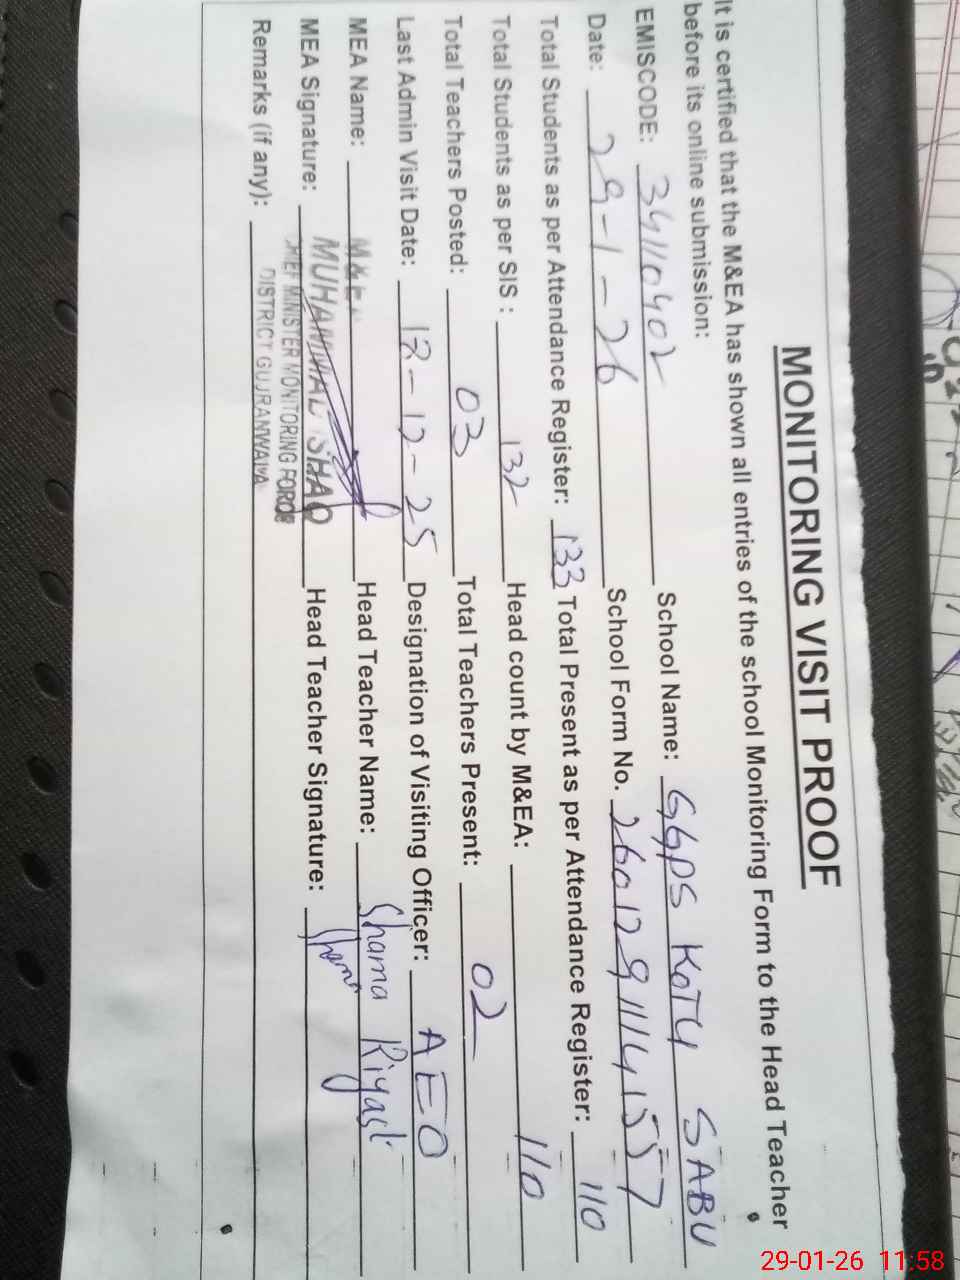 MONITORING VISIT PROOF
It is certified that the M&EA has shown all entries of the school Monitoring Form to the Head Teacher
before its online submission:
EMISCODE: 34110402 School Name: GGPS KOTLI SABU
Date: 29-1-26 School Form No. 26012911114157
Total Students as per Attendance Register: 133 Total Present as per Attendance Register: 110
Total Students as per SIS : 132 Head count by M&EA: 110
Total Teachers Posted: 03 Total Teachers Present: 02
Last Admin Visit Date: 12-12-25 Designation of Visiting Officer: AEO
MEA Name: Head Teacher Name: Shama Riyast
MEA Signature: MUHAMMAD Head Teacher Signature: Shama
CHIEF MINISTER MONITORING FORCE
Remarks (if any): DISTRICT GUJRANWALA
29-01-26 11:58